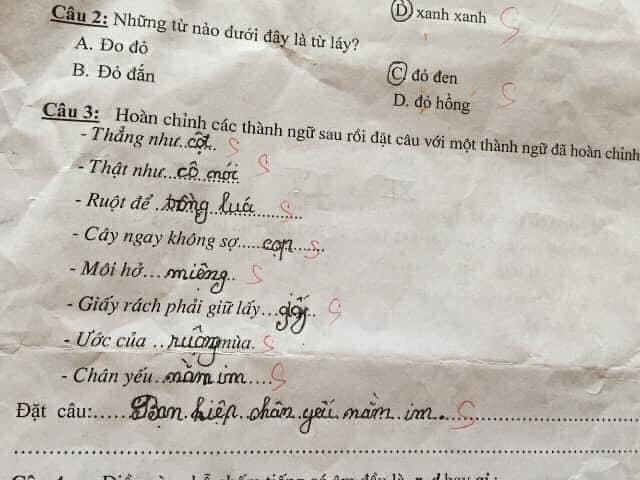 D xanh xanh S
Câu 2: Những từ nào dưới đây là từ láy?
A. Đo đỏ
C đỏ đen S
B. Đỏ đắn
D. đỏ hồng
Câu 3: Hoàn chỉnh các thành ngữ sau rồi đặt câu với một thành ngữ đã hoàn chỉnh
- Thẳng như..cột.. S
- Thật như...cô mói S
- Ruột để ..tròng luá........ S
- Cây ngay không sợ.....cọp...... S
- Môi hở...miệng.. S
- Giấy rách phải giữ lấy...giấy.. S
- Ước của ..ruộng mùa. S
- Chân yếu..nằm im.... S
Đặt câu:......Bạn.hiệp.chân.yếu.nằm.im. S